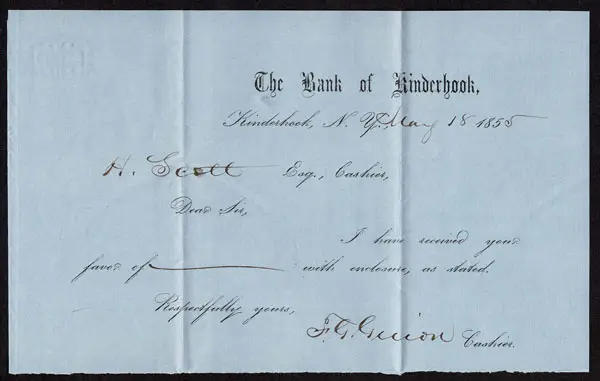 The Bank of Kinderhook,
Kinderhook, N. Y., May 18 1855
H. Scott Esq., Cashier,
Dear Sir,
I have received your
favor of with enclosure, as stated.
Respectfully yours,
F. G. Guion Cashier.